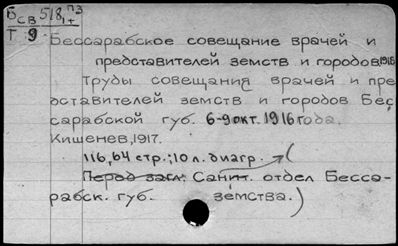 Бсв 518, пз
1+
Т 9
Бессарабское совещание врачей и
представителей земств и городов, 1916
Труды совещания врачей и пре
дставителей земств и городов Бес
сарабской губ. 6-9 окт. 1916 года.
Кишенев, 1917.
116, 64 стр.; 10 л. диагр.
Перед загл: Санит. отдел Бесса-
рабск. губ. земства.)